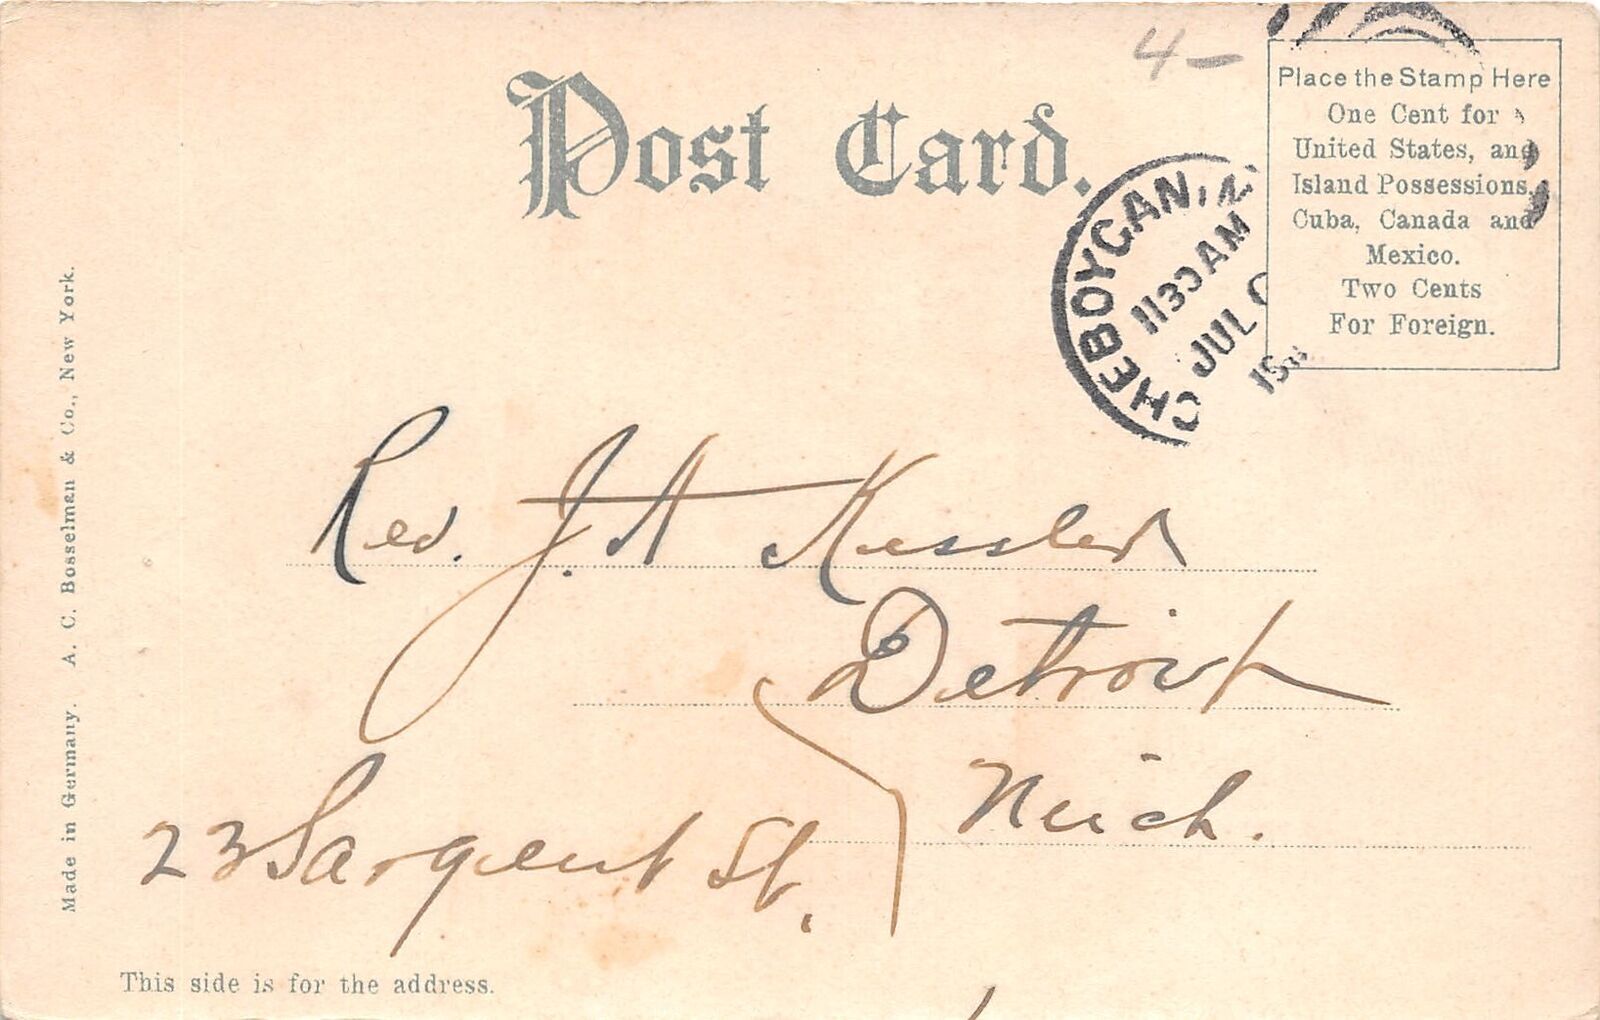 4-
Post Card.
Place the Stamp Here
One Cent for
United States, and
Island Possessions,
Cuba, Canada and
Mexico.
Two Cents
For Foreign.
CHEBOYGAN,
1130 AM
JUL
Rev. J. H. Kessler
Detroit
Mich.
23 Sargent St.
This side is for the address.
Made in Germany. A. C. Bosselman & Co., New York.